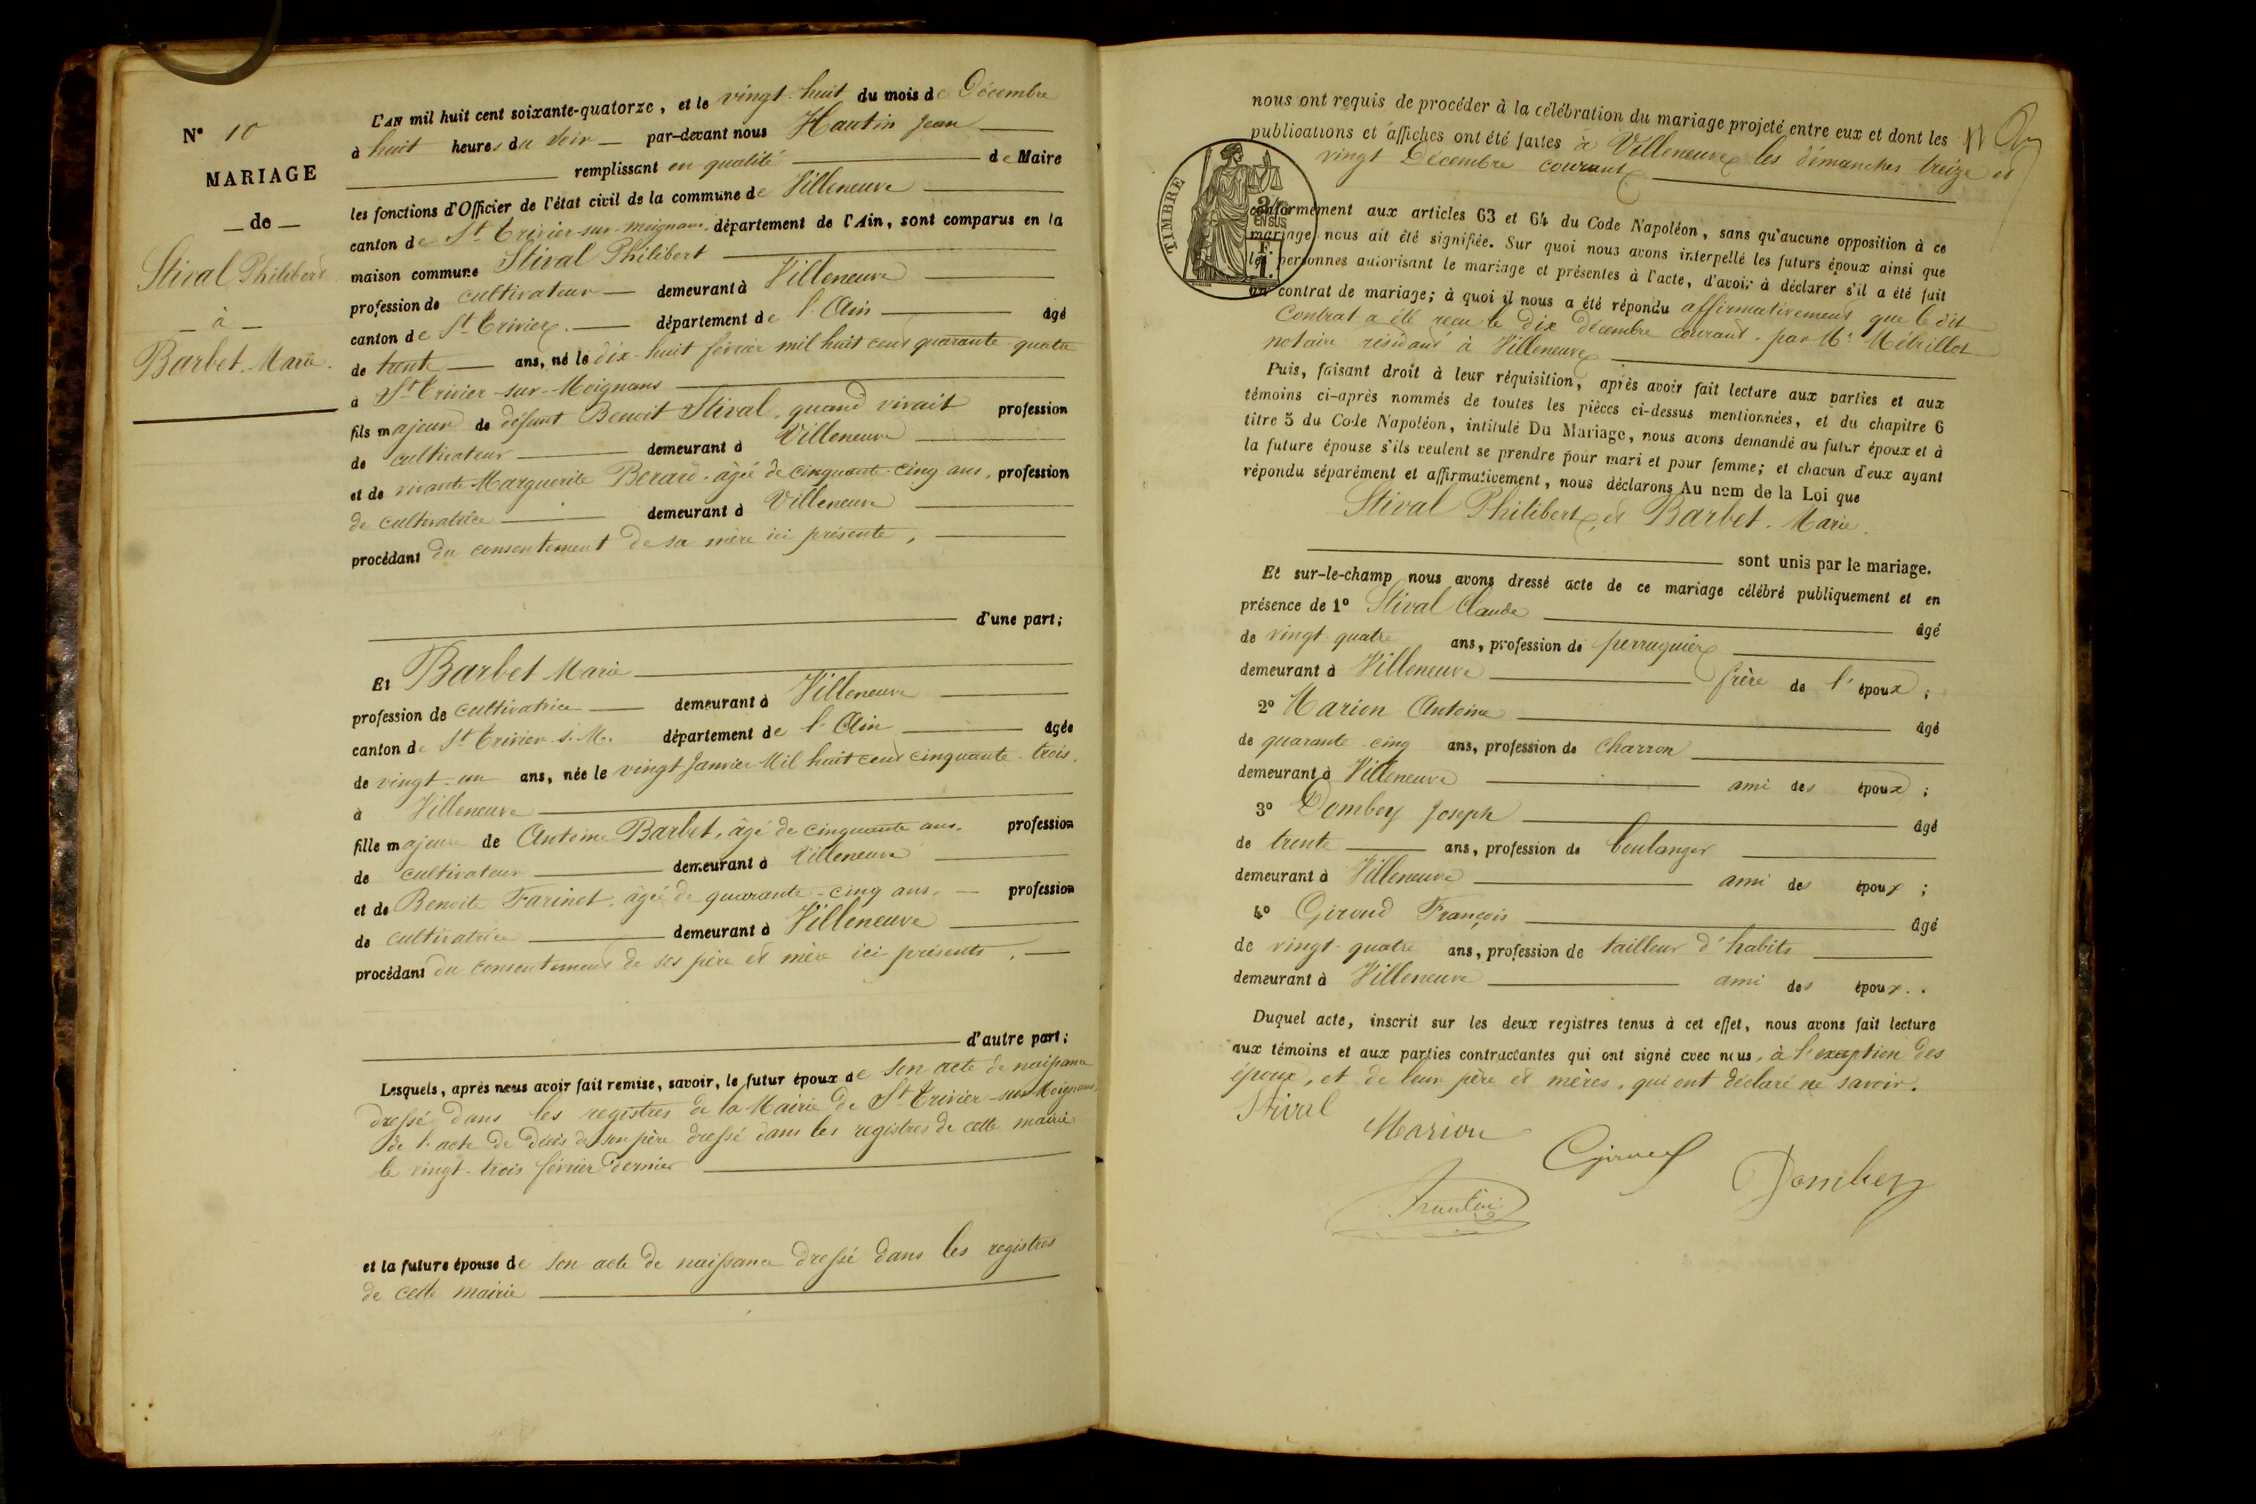 N° 10
MARIAGE
de
Stival Philibert
à
Barbet Marie.
L'AN mil huit cent soixante-quatorze, et le vingt-huit du mois de Décembre
à huit heures du soir par-devant nous Hautin Jean
remplissant en qualité de Maire
les fonctions d'Officier de l'état civil de la commune de Villeneuve
canton de St Trivier-sur-Moignans, département de l'Ain, sont comparus en la
maison commune Stival Philibert
profession de cultivateur demeurant à Villeneuve
canton de St Trivier. département de l'Ain âgé
de trente ans, né le dix-huit février mil huit cent quarante-quatre
à St Trivier-sur-Moignans
fils majeur de défunt Benoit Stival, quand vivait profession
de cultivateur demeurant à Villeneuve
et de vivante Marguerite Beraud, âgée de cinquante-cinq ans, profession
de cultivatrice demeurant à Villeneuve
procédant du consentement de sa mère ici présente,
d'une part;
Et Barbet Marie
profession de cultivatrice demeurant à Villeneuve
canton de St Trivier s. M. département de l'Ain âgée
de vingt-un ans, née le vingt Janvier Mil huit cent cinquante-trois.
à Villeneuve
fille majeure de Antoine Barbet, âgé de cinquante ans. profession
de cultivateur demeurant à Villeneuve
et de Benoite Farinet, âgée de quarante-cinq ans, profession
de cultivatrice demeurant à Villeneuve
procédant du consentement de ses père et mère ici présents,
d'autre part;
Lesquels, après nous avoir fait remise, savoir, le futur époux de son acte de naissance
dressé dans les registres de la Mairie de St Trivier-sur-Moignans,
de l'acte de décès de son père dressé dans les registres de cette mairie
le vingt-trois février dernier
et la future épouse de son acte de naissance dressé dans les registres
de cette mairie
nous ont requis de procéder à la célébration du mariage projeté entre eux et dont les
publications et affiches ont été faites à Villeneuve les dimanches treize et
vingt Décembre courant
TIMBRE
conformément aux articles 63 et 64 du Code Napoléon, sans qu'aucune opposition à ce
mariage nous ait été signifiée. Sur quoi nous avons interpellé les futurs époux ainsi que
les personnes autorisant le mariage et présentes à l'acte, d'avoir à déclarer s'il a été fait
un contrat de mariage; à quoi il nous a été répondu affirmativement que le dit
Contrat a été reçu le dix décembre courant, par Me Métrillot
notaire résidant à Villeneuve
Puis, faisant droit à leur réquisition, après avoir fait lecture aux parties et aux
témoins ci-après nommés de toutes les pièces ci-dessus mentionnées, et du chapitre 6
titre 5 du Code Napoléon, intitulé Du Mariage, nous avons demandé au futur époux et à
la future épouse s'ils veulent se prendre pour mari et pour femme; et chacun d'eux ayant
répondu séparément et affirmativement, nous déclarons Au nom de la Loi que
Stival Philibert, et Barbet Marie.
sont unis par le mariage.
Et sur-le-champ nous avons dressé acte de ce mariage célébré publiquement et en
présence de 1° Stival Claude âgé
de vingt-quatre ans, profession de perruquier
demeurant à Villeneuve frère de l'époux;
2° Marion Antoine âgé
de quarante-cinq ans, profession de charron
demeurant à Villeneuve ami des époux;
3° Dombey Joseph âgé
de trente ans, profession de boulanger
demeurant à Villeneuve ami des époux;
4° Giroud François âgé
de vingt-quatre ans, profession de tailleur d'habits
demeurant à Villeneuve ami des époux.
Duquel acte, inscrit sur les deux registres tenus à cet effet, nous avons fait lecture
aux témoins et aux parties contractantes qui ont signé avec nous, à l'exception des
époux, et de leur père et mères, qui ont déclaré ne savoir.
Stival
Marion
Giroud
Dombey
Hautin